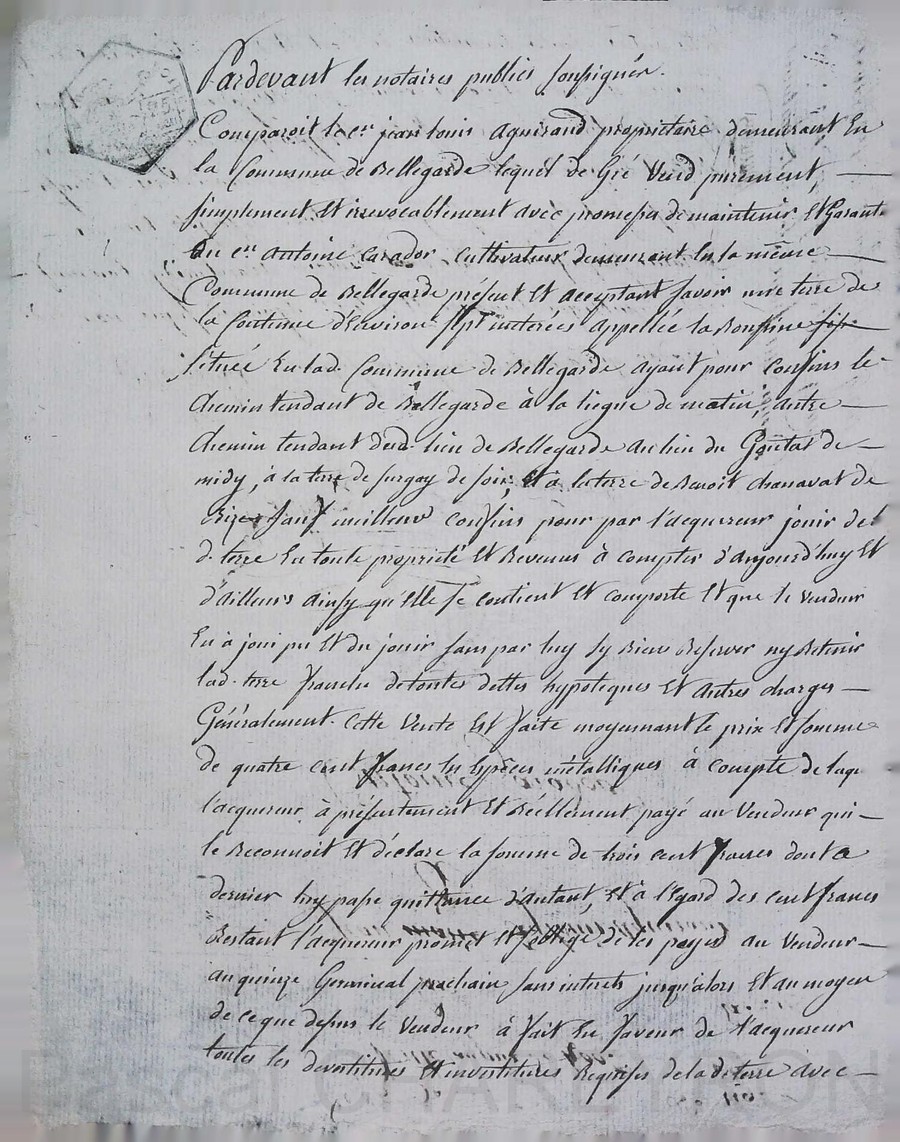 Pardevant les notaires publics soussignés.
Comparoit le cen jean louis aguiraud propriétaire demeurant En
la Commune de Bellegarde lequel de Gré Vend purement,
simplement Et irrevocablement avec promesse de maintenir Et Garant
au cen antoine carador cultivateur demeurant En la même
Commune de Bellegarde présent Et acceptant savoir une terre de
la Contenue d'Environ sept meterées appellée la
située En lad. Commune de Bellegarde ayant pour confins le
chemin tendant de Bellegarde à la de matin, autre
chemin tendant dud. lieu de Bellegarde au lieu du de
midy, à la terre de de soir, Et à la terre de Benoit chanavat de
Bize sauf meilleurs confins pour par l'acquereur jouir de l
d. terre En toute propriété Et Revenus à compter d'aujourd'huy Et
d'ailleurs ainsy qu'Elle se contient Et comporte Et que le vendeur
En à joui pu Et du jouir sans par luy sy Rien Reserver ny Retenir
lad. terre franche de toutes dettes hypoteques Et autres charges
Généralement. Cette Vente Est faite moyennant le prix Et somme
de quatre cent francs En Espèces métalliques à compte de laqu
l'acquereur à présentement Et Réellement payé au Vendeur qui
le Reconnoit Et déclare la somme de trois cent francs dont ce
dernier luy passe quittance d'autant, Et à l'Egard des cent francs
Restant l'acquereur promet Et s'oblige de les payer au Vendeur
au quinze Germinal prochain sans interets jusqu'alors Et au moyen
de ce que dessus le Vendeur à fait En faveur de l'acquereur
toutes les devestitures Et investitures Requises de la de terre avec